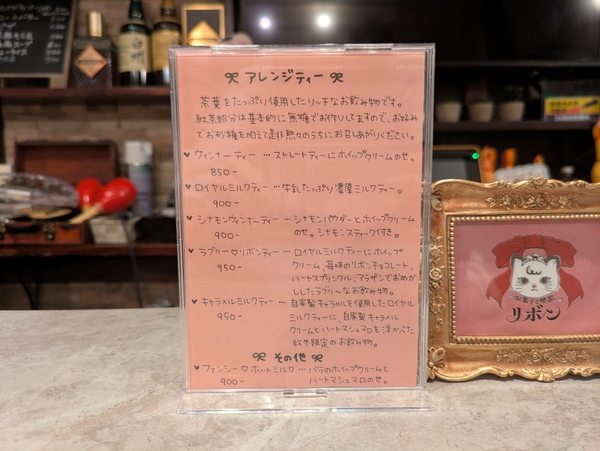 アレンジティー
茶葉をたっぷり使用したリッチなお飲み物です。
紅茶部分は基本的に無糖でお作りしてますので、お好み
でお砂糖を加えて是非熱々のうちにお召しあがりください。
♥ ウィンナーティー … ストレートティーにホイップクリームのせ。
850-
♥ ロイヤルミルクティー … 牛乳たっぷり濃厚ミルクティー。
900-
♥ シナモンウィンナーティー … シナモンパウダーとホイップクリーム
900- のせ。シナモンスティック付き。
♥ ラブリー♡リボンティー … ロイヤルミルクティーにホイップ
950- クリーム、苺味のリボンチョコレート、
ハートスプリンクル、アラザンでおめか
ししたラブリ〜なお飲み物。
♥ キャラメルミルクティー … 自家製キャラメルを使用したロイヤル
950- ミルクティーに、自家製キャラメル
クリームとハートマシュマロを浮かべた
秋冬限定のお飲み物。
その他
♥ ファンシー♡ホットミルク … バラのホイップクリームと
900- ハートマシュマロのせ。
リボン
白州